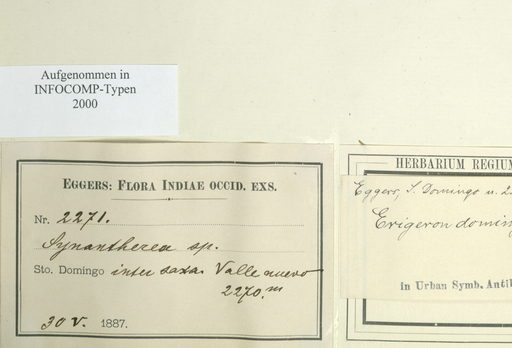 Aufgenommen in
INFOCOMP-Typen
2000
EGGERS: FLORA INDIAE OCCID. EXS.
Nr. 2271.
Synantherea sp.
Sto. Domingo inter saxa. Valle nuevo
2270.m
30 V. 1887.
HERBARIUM REGIUM
Eggers, S. Domingo n. 2
Erigeron doming
in Urban Symb. Antil